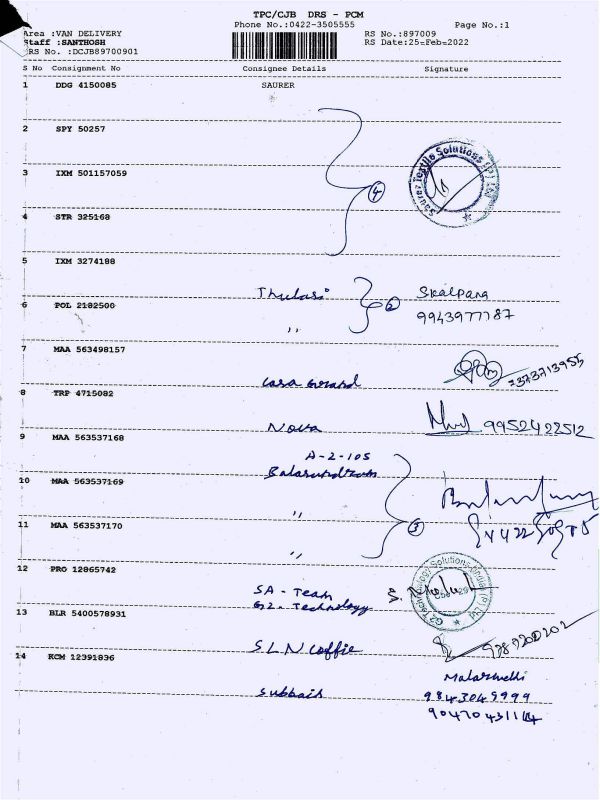 TPC/CJB DRS - PCM
Phone No.:0422-3505555 Page No.:1
Area :VAN DELIVERY
Staff :SANTHOSH
RS No.:897009
DRS No. :DCJB89700901
RS Date:25-Feb-2022
S No Consignment No Consignee Details Signature
1 DDG 4150085 SAURER
2 SPY 50257
3 IXM 501157059
4
Saurer Textile Solutions (P) Ltd
4 STR 325168
5 IXM 3274188
Thulasi 2 Skalpana
6 POL 2182500
,, 9943977787
7 MAA 563498157
7373713955
8 TRP 4715082
Nova 9952422512
9 MAA 563537168
A-2-105
10 MAA 563537169
,,
11 MAA 563537170 3
,,
12 PRO 12865742
SA - Team
G2 - Technology
G2 Technology Solutions India (P) Ltd
13 BLR 5400578931
SLN Coffie
14 KCM 12391836
Subbaih
9843049999